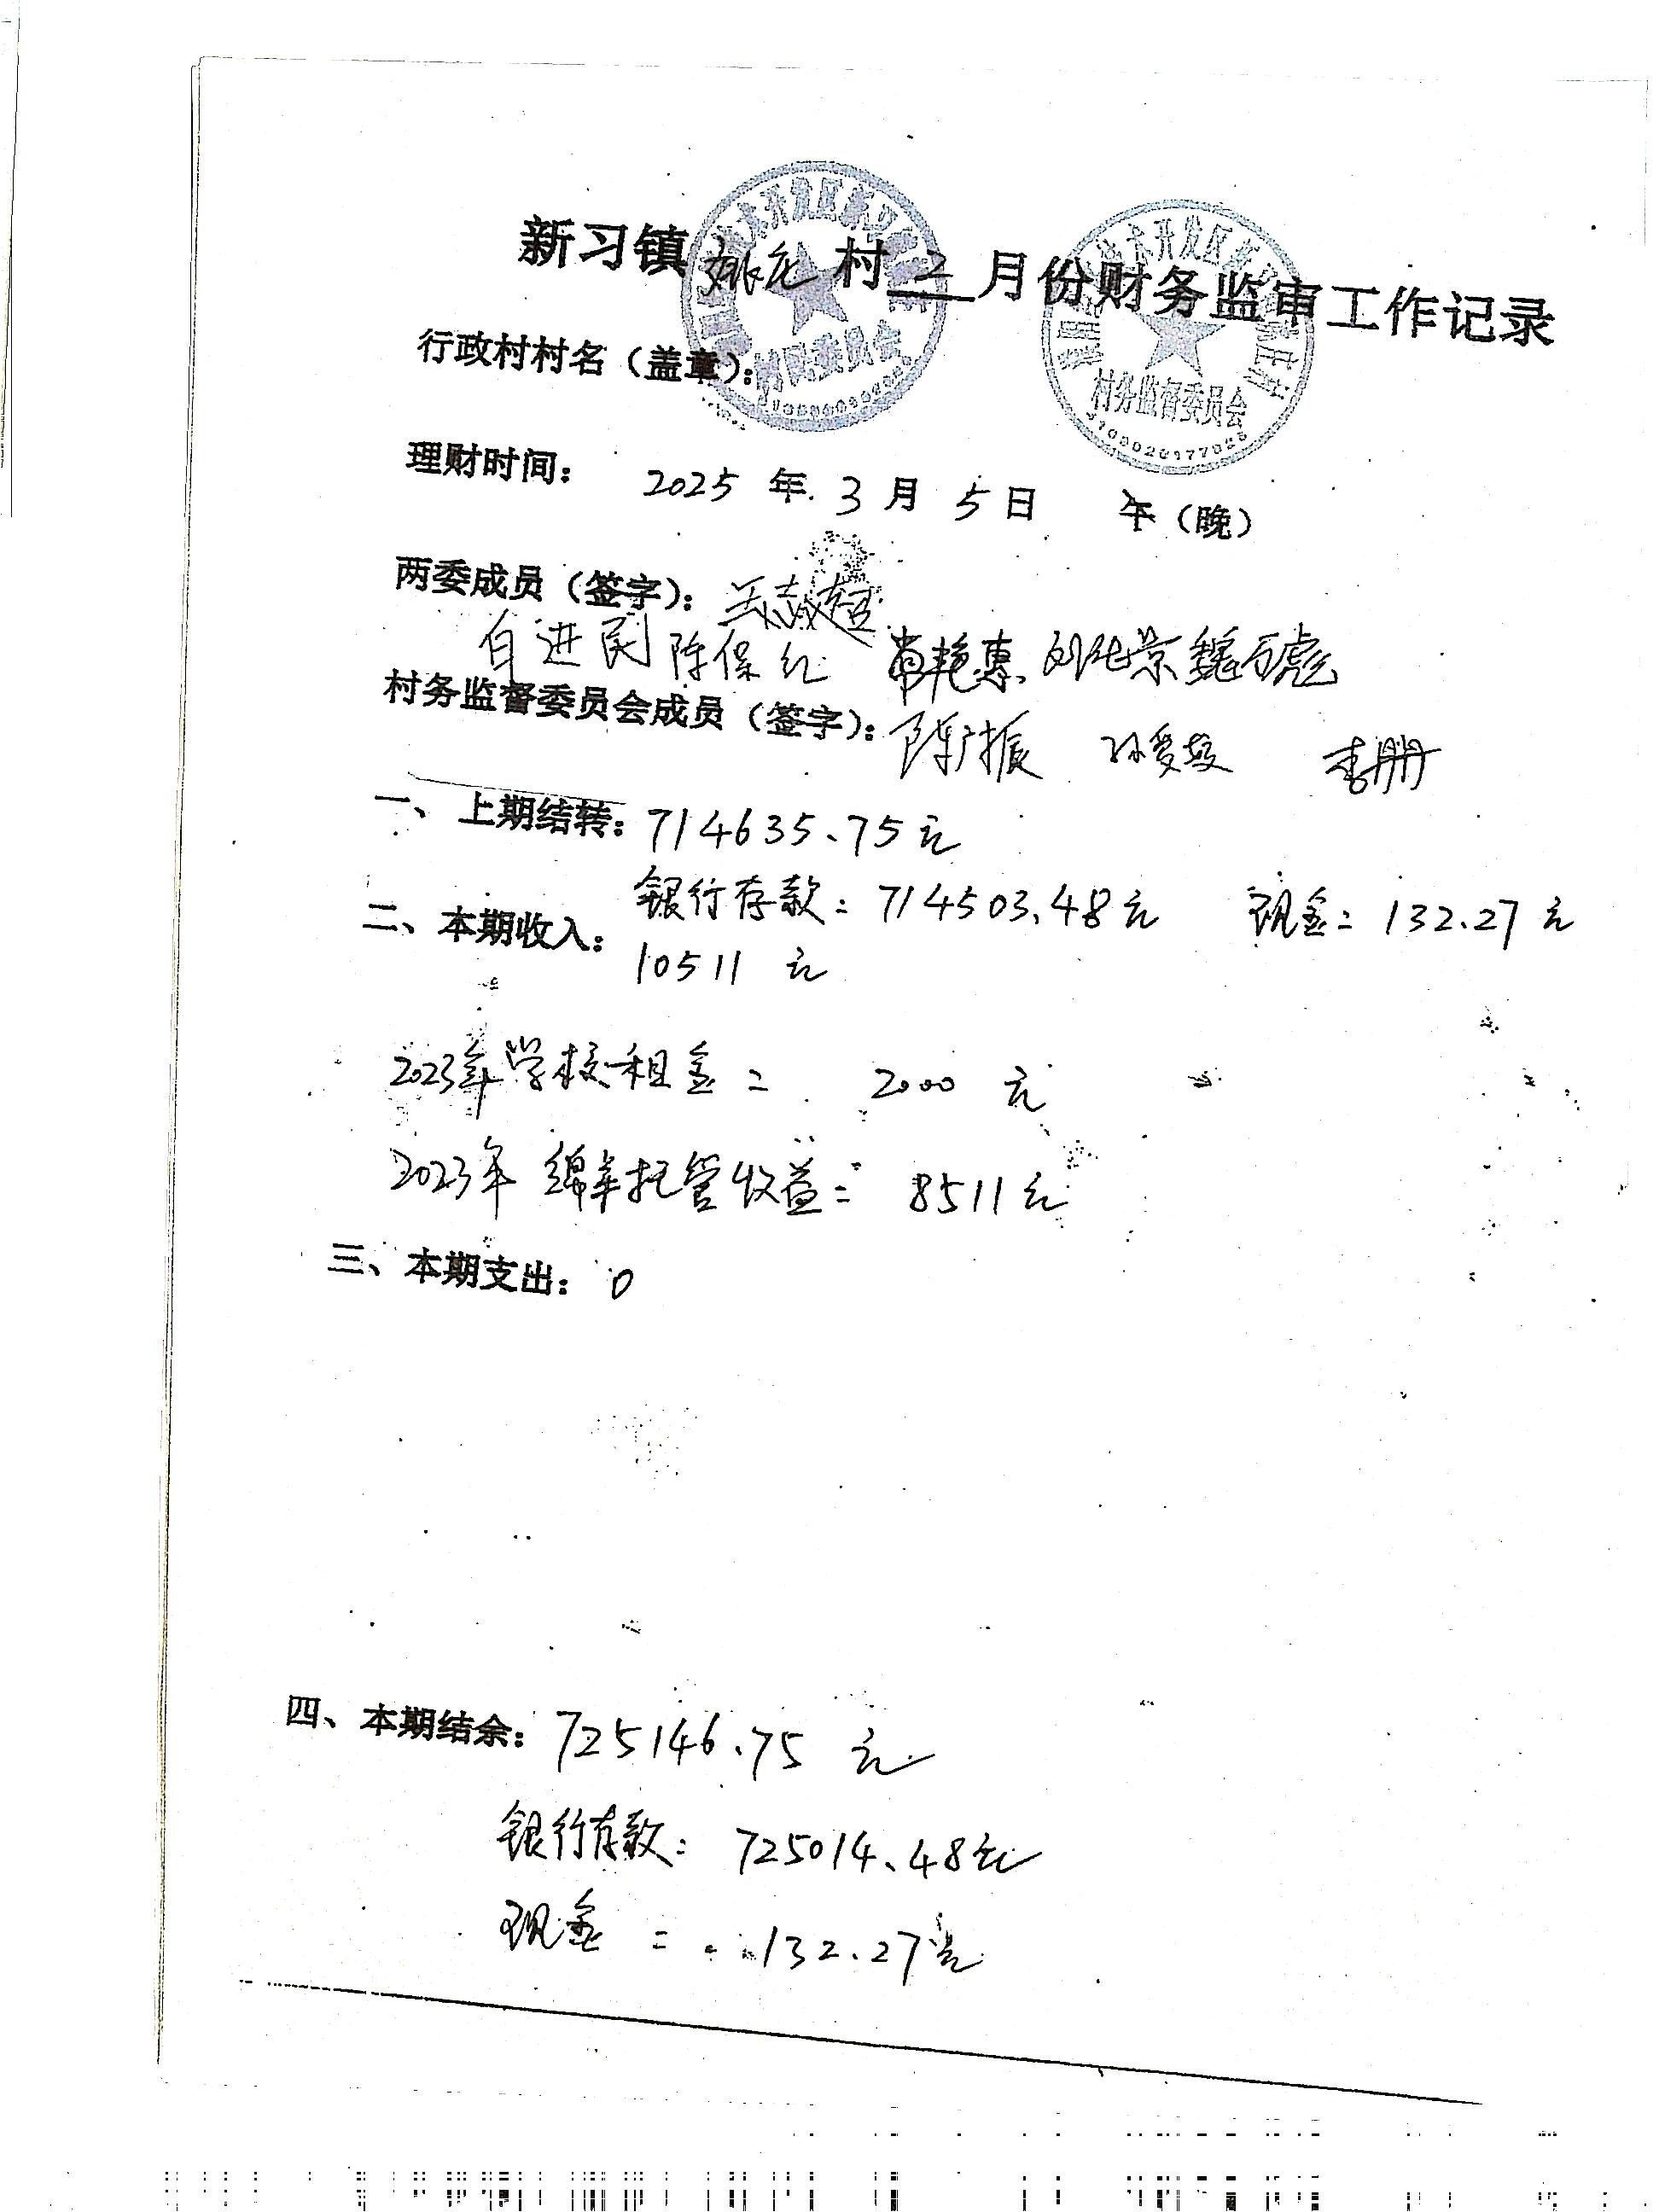 新习镇姚庄村2月份财务监审工作记录
行政村村名（盖章）：
村民委员会
村务监督委员会
理财时间： 2025年3月5日 午（晚）
两委成员（签字）：王志超
白进民 陈保红 肖艳惠 刘继景 魏万彪
村务监督委员会成员（签字）：陈广振 孙爱芝 李册
一、上期结转：714635.75元
银行存款：714503.48元 现金：132.27元
二、本期收入：
10511 元
2023年学校租金： 2000 元
2023年 绵羊托管收益： 8511元
三、本期支出：0
四、本期结余：725146.75 元
银行存款：725014.48元
现金：132.27元